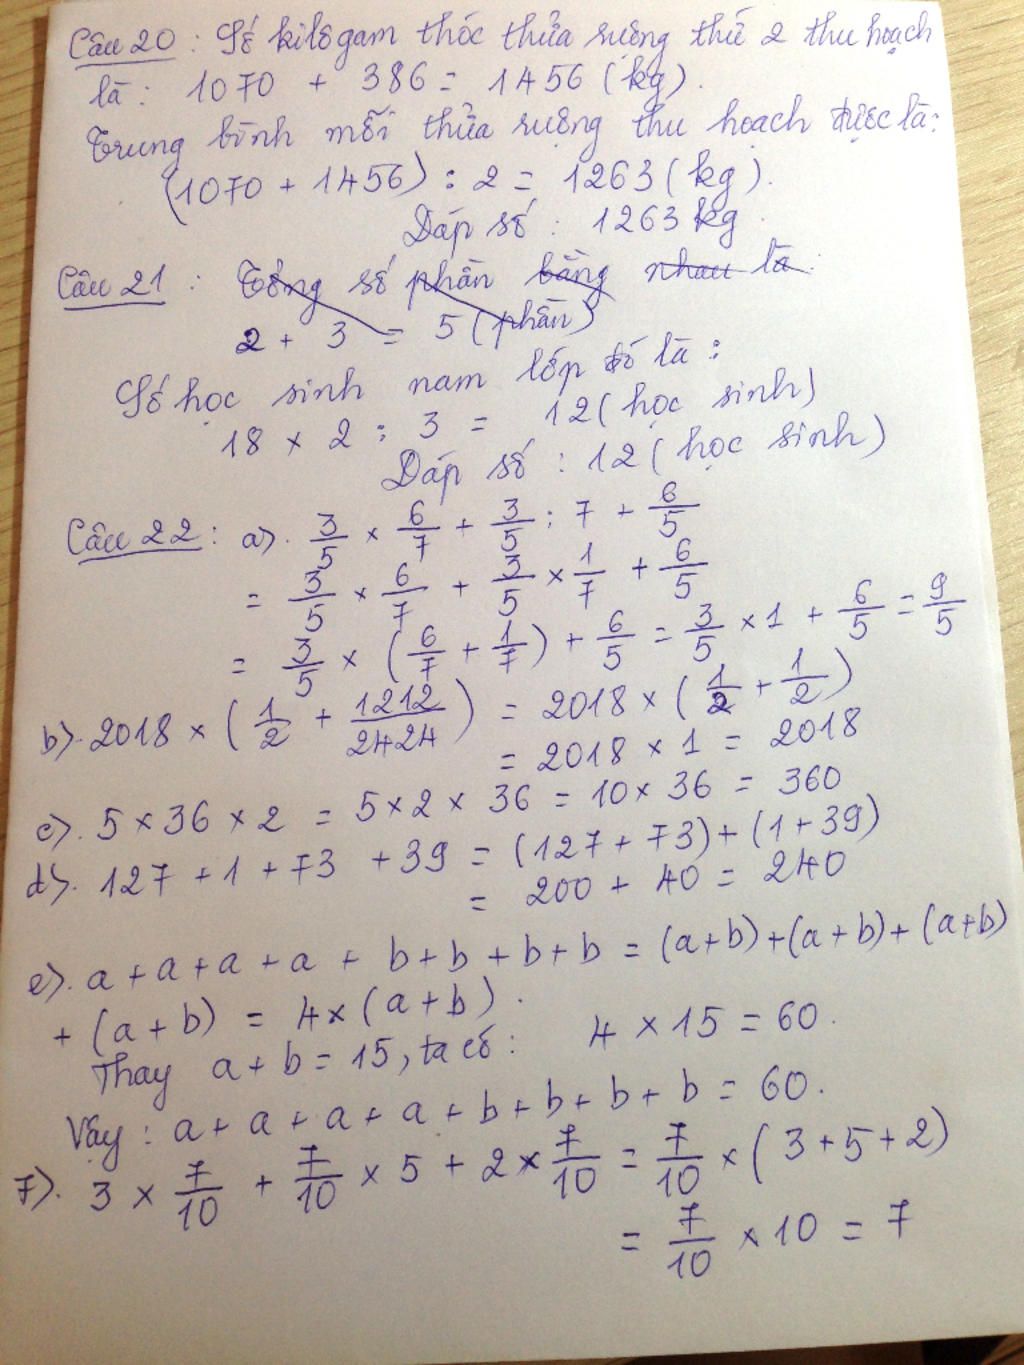 Câu 20 : Số kilôgam thóc thửa ruộng thứ 2 thu hoạch
là : 1070 + 386 = 1456 (kg).
Trung bình mỗi thửa ruộng thu hoạch được là:
(1070 + 1456) : 2 = 1263 (kg).
Đáp số : 1263 kg.
Câu 21 : Tổng số phần bằng nhau là:
2 + 3 = 5 (phần)
Số học sinh nam lớp đó là :
18 × 2 : 3 = 12 (học sinh)
Đáp số : 12 (học sinh)
Câu 22 : a). 3/5 × 6/7 + 3/5 : 7 + 6/5
= 3/5 × 6/7 + 3/5 × 1/7 + 6/5
= 3/5 × (6/7 + 1/7) + 6/5 = 3/5 × 1 + 6/5 = 9/5
b). 2018 × (1/2 + 1212/2424) = 2018 × (1/2 + 1/2)
= 2018 × 1 = 2018
c). 5 × 36 × 2 = 5 × 2 × 36 = 10 × 36 = 360
d). 127 + 1 + 73 + 39 = (127 + 73) + (1 + 39)
= 200 + 40 = 240
e). a + a + a + a + b + b + b + b = (a+b) + (a+b) + (a+b)
+ (a + b) = 4 × (a + b).
Thay a + b = 15, ta có : 4 × 15 = 60.
Vậy : a + a + a + a + b + b + b + b = 60.
f). 3 × 7/10 + 7/10 × 5 + 2 × 7/10 = 7/10 × (3 + 5 + 2)
= 7/10 × 10 = 7